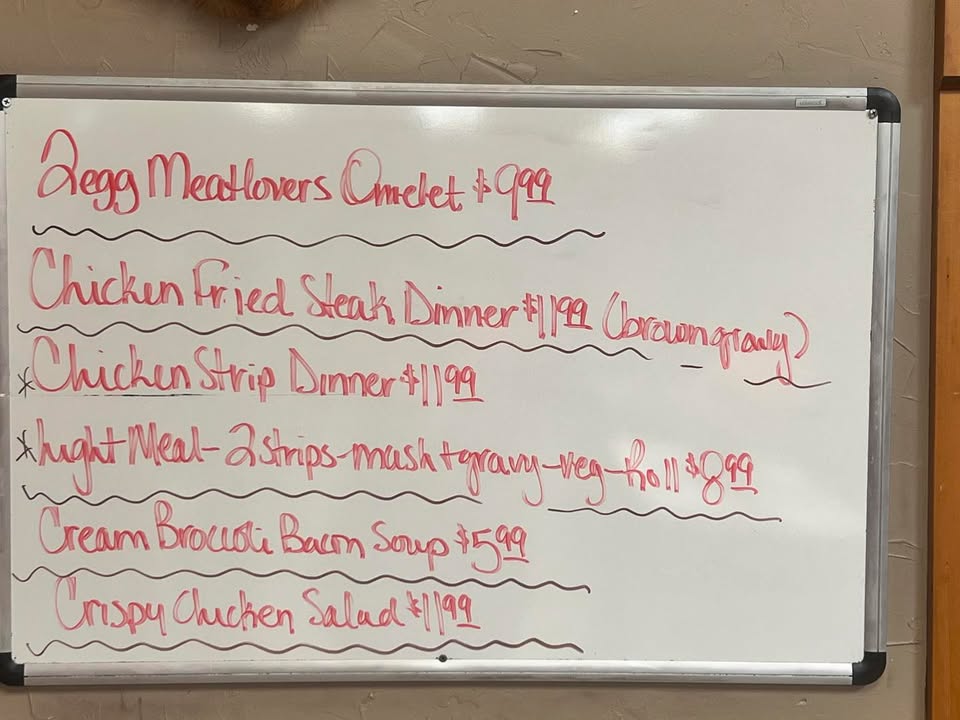 2egg Meatlovers Omelet $9.99
Chicken Fried Steak Dinner $11.99 (brown gravy)
*Chicken Strip Dinner $11.99
*Light Meal-2 strips-mash+gravy-veg-Roll $8.99
Cream Broccoli Bacon Soup $5.99
Crispy Chicken Salad $11.99